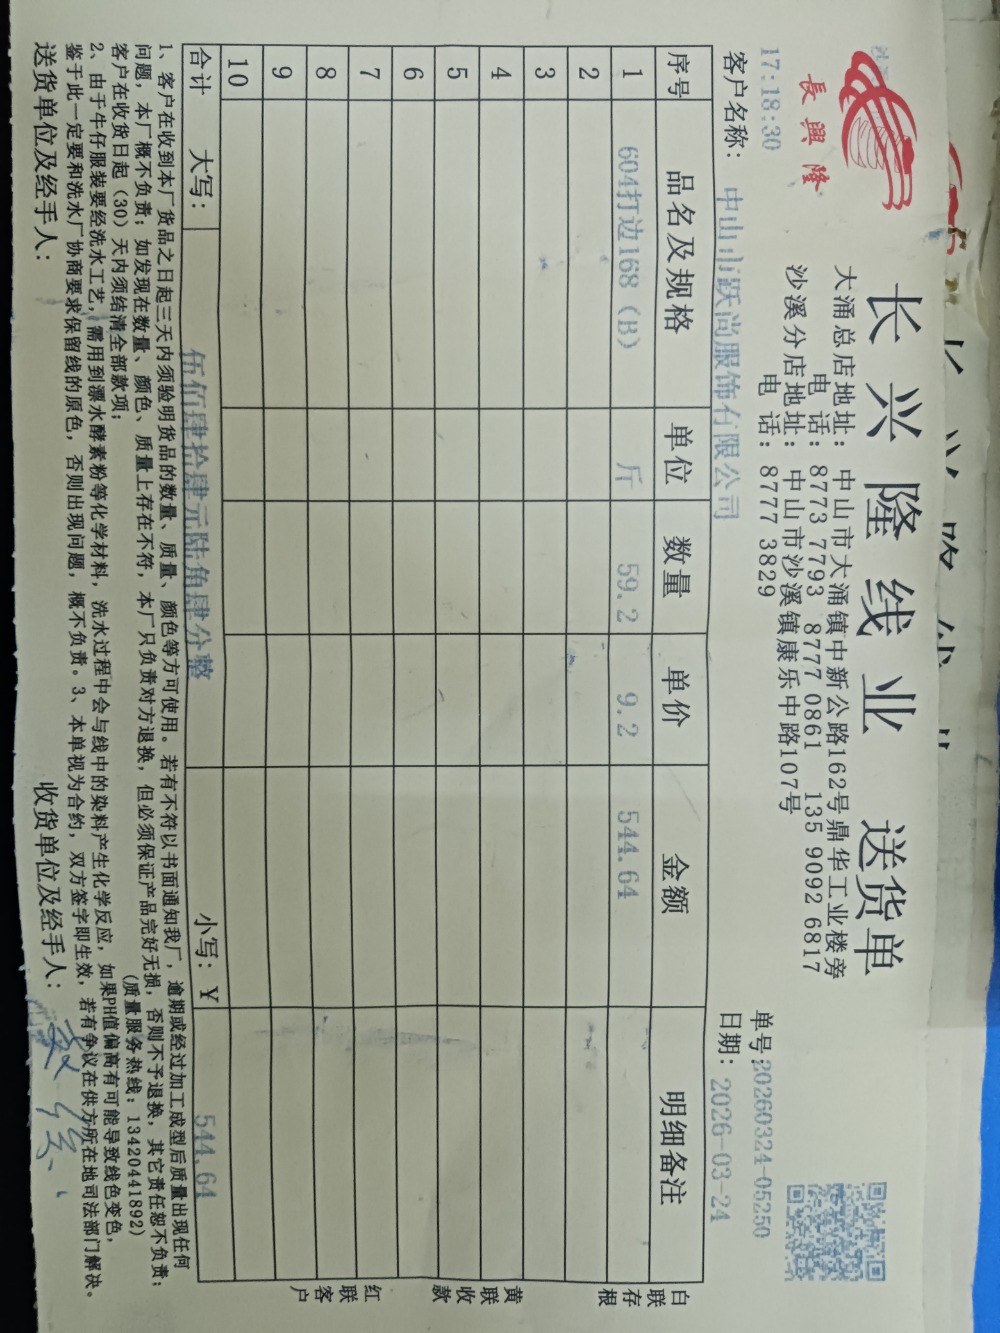 長興隆
长兴隆线业 送货单
大涌总店地址：中山市大涌镇中新公路162号鼎华工业楼旁
电 话：8773 7793 8777 0861 135 9092 6817
沙溪分店地址：中山市沙溪镇康乐中路107号
电 话：8777 3829
17:18:30
单号:20260324-05250
客户名称： 中山市跃尚服饰有限公司
日期：2026-03-24
序号 品名及规格 单位 数量 单价 金额 明细备注
1 604打边168（B） 斤 59.2 9.2 544.64
2
3
4
5
6
7
8
9
10
合计 大写： 伍佰肆拾肆元陆角肆分整 小写：￥ 544.64
白联存根
黄联收款
红联客户
1、客户在收到本厂货品之日起三天内须验明货品的数量、质量、颜色等方可使用。若有不符以书面通知我厂，逾期或经过加工成型后质量出现任何
问题，本厂概不负责；如发现在数量、颜色、质量上存在不符，本厂只负责对方退换，但必须保证产品完好无损，否则不予退换，其它责任恕不负责；
客户在收货日起（30）天内须结清全部款项； （质量服务热线：13420441892）
2、由于牛仔服装要经洗水工艺，需用到漂水酵素粉等化学材料，洗水过程中会与线中的染料产生化学反应，如果PH值偏高有可能导致线色变色，
鉴于此一定要和洗水厂协商要求保留线的原色，否则出现问题，概不负责。3、本单视为合约，双方签字即生效，若有争议在供方所在地司法部门解决。
送货单位及经手人： 收货单位及经手人：